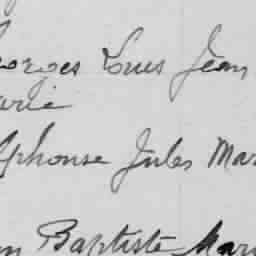 eorges Louis Jean
arie
lphonse Jules Mar
n Baptiste Mari